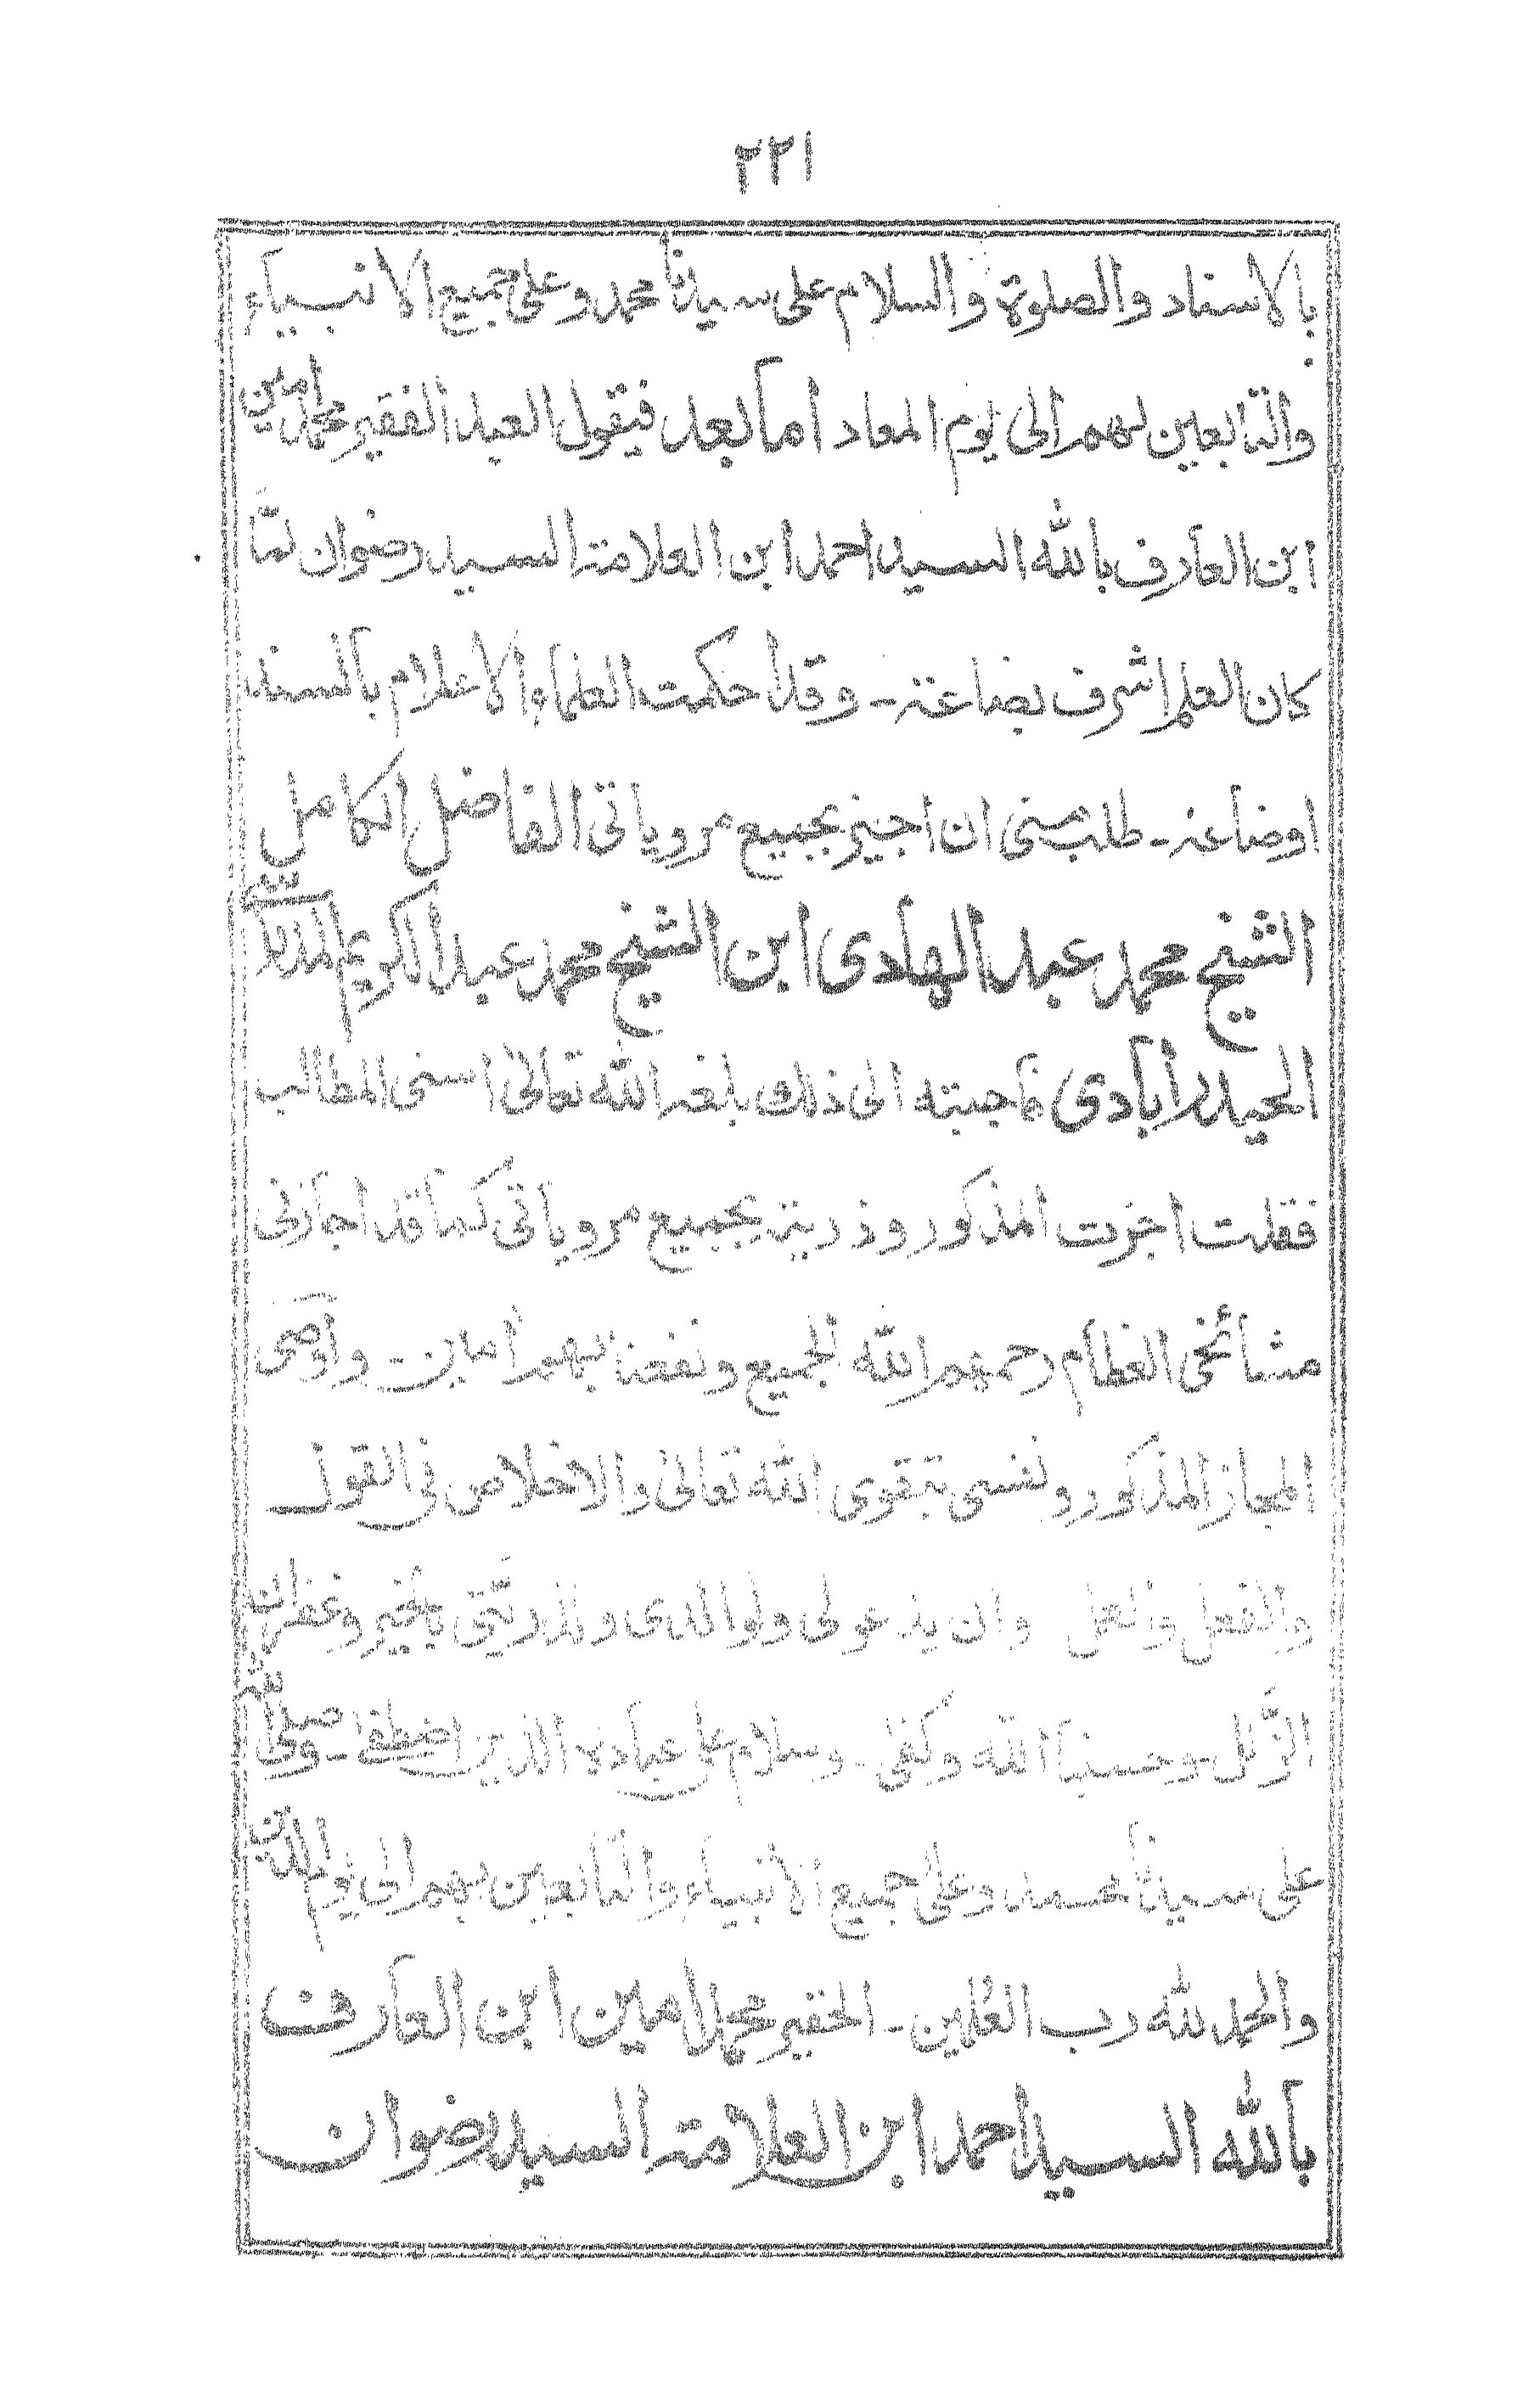 ٢٢١
بالاسناد والصلوة والسلام على سيدنا محمد وعلى جميع الانبياء
والتابعين لهم الى يوم المعاد اما بعد فيقول العبد الفقير محمد امين
ابن العارف بالله السيد احمد ابن العلامة السيد رضوان لمّا
كان العلم اشرف بضاعة - وقد احكمت العلماء الاعلام بالسند
اوضاعه - طلب منى ان اجيز بجميع مروياتى الفاضل الكامل
الشيخ محمد عبد الهادى ابن الشيخ محمد عبد الكريم المدراسى
الحيدرابادى فاجبته الى ذلك بلغه الله تعالى اسنى المطالب
فقلت اجزت المذكور وذريته بجميع مروياتى كما قد اجازنى
مشائخى العظام رحمهم الله الجميع ونفعنا بهم امين - واوصى
المجاز المذكور ونفسى بتقوى الله تعالى والاخلاص فى القول
والفعل والعمل وان يدعو لى ولوالدى ولذريّتى بالخير وغفران
الزّلل - وحسبنا الله وكفى - وسلام على عباده الذين اصطفى - وصلى الله
على سيدنا محمد وعلى جميع الانبياء والتابعين بهم الى يوم الدين
والحمد لله رب العٰلمين - الحقير محمد امين ابن العارف
بالله السيد احمد ابن العلامة السيد رضوان